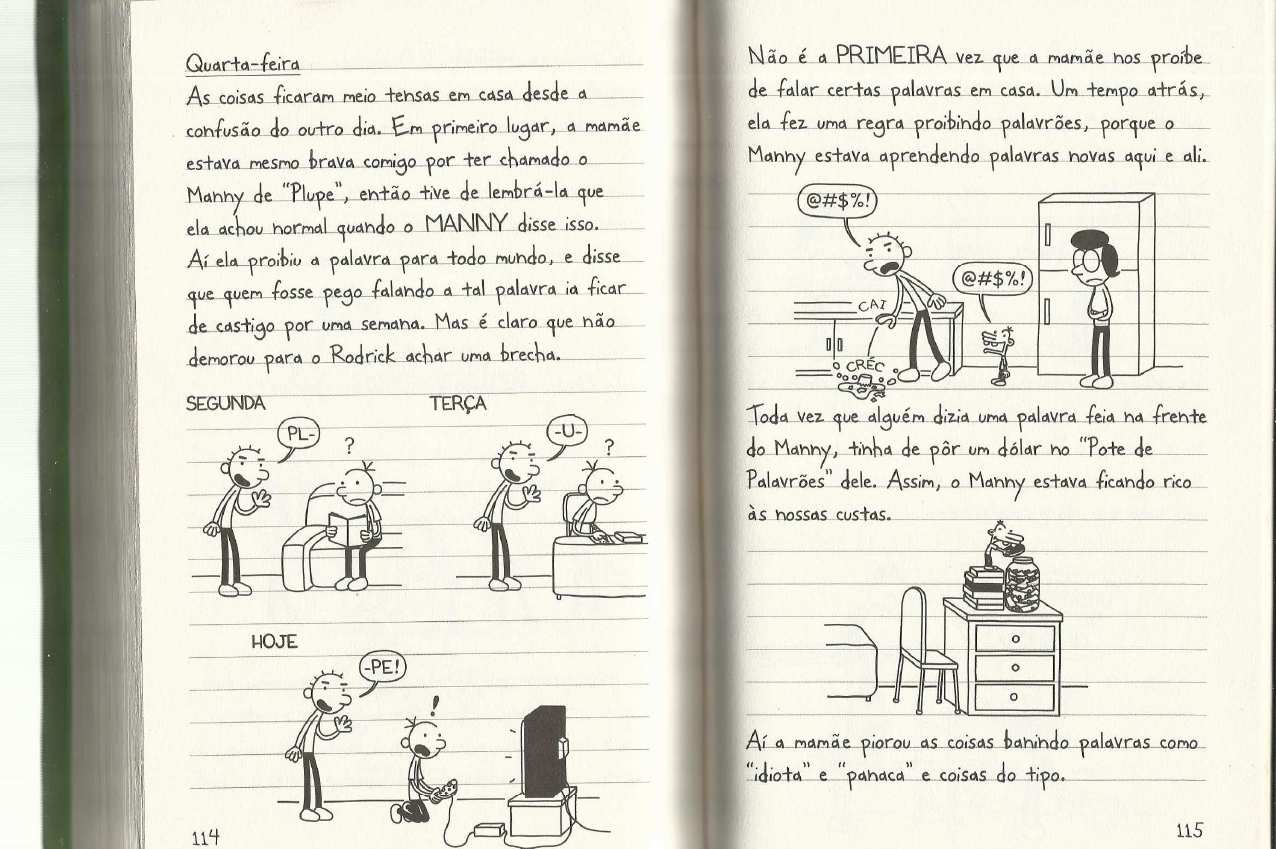 Quarta-feira
As coisas ficaram meio tensas em casa desde a
confusão do outro dia. Em primeiro lugar, a mamãe
estava mesmo brava comigo por ter chamado o
Manny de "Plupe", então tive de lembrá-la que
ela achou normal quando o MANNY disse isso.
Aí ela proibiu a palavra para todo mundo, e disse
que quem fosse pego falando a tal palavra ia ficar
de castigo por uma semana. Mas é claro que não
demorou para o Rodrick achar uma brecha.
SEGUNDA
TERÇA
PL-
?
-U-
?
HOJE
-PE!
!
114
Não é a PRIMEIRA vez que a mamãe nos proíbe
de falar certas palavras em casa. Um tempo atrás,
ela fez uma regra proibindo palavrões, porque o
Manny estava aprendendo palavras novas aqui e ali.
@#$%!
@#$%!
CAI
CRÉC
Toda vez que alguém dizia uma palavra feia na frente
do Manny, tinha de pôr um dólar no "Pote de
Palavrões" dele. Assim, o Manny estava ficando rico
às nossas custas.
Aí a mamãe piorou as coisas banindo palavras como
"idiota" e "panaca" e coisas do tipo.
115